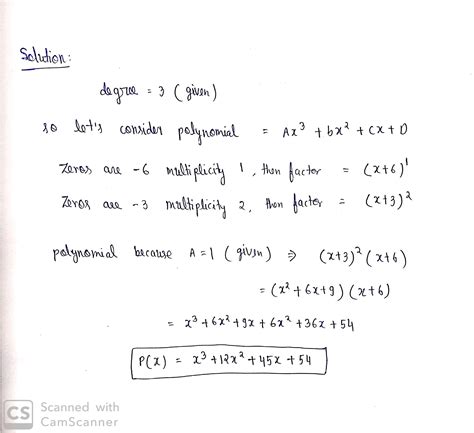 Solution:
degree = 3 (given)
so let's consider polynomial = Ax³ + bx² + Cx + D
Zeros are -6 multiplicity 1, then factor = (x+6)¹
Zeros are -3 multiplicity 2, then factor = (x+3)²
polynomial because A=1 (given) ⇒ (x+3)² (x+6)
= (x² + 6x + 9) (x+6)
= x³ + 6x² + 9x + 6x² + 36x + 54
P(x) = x³ + 12x² + 45x + 54
CS Scanned with
CamScanner